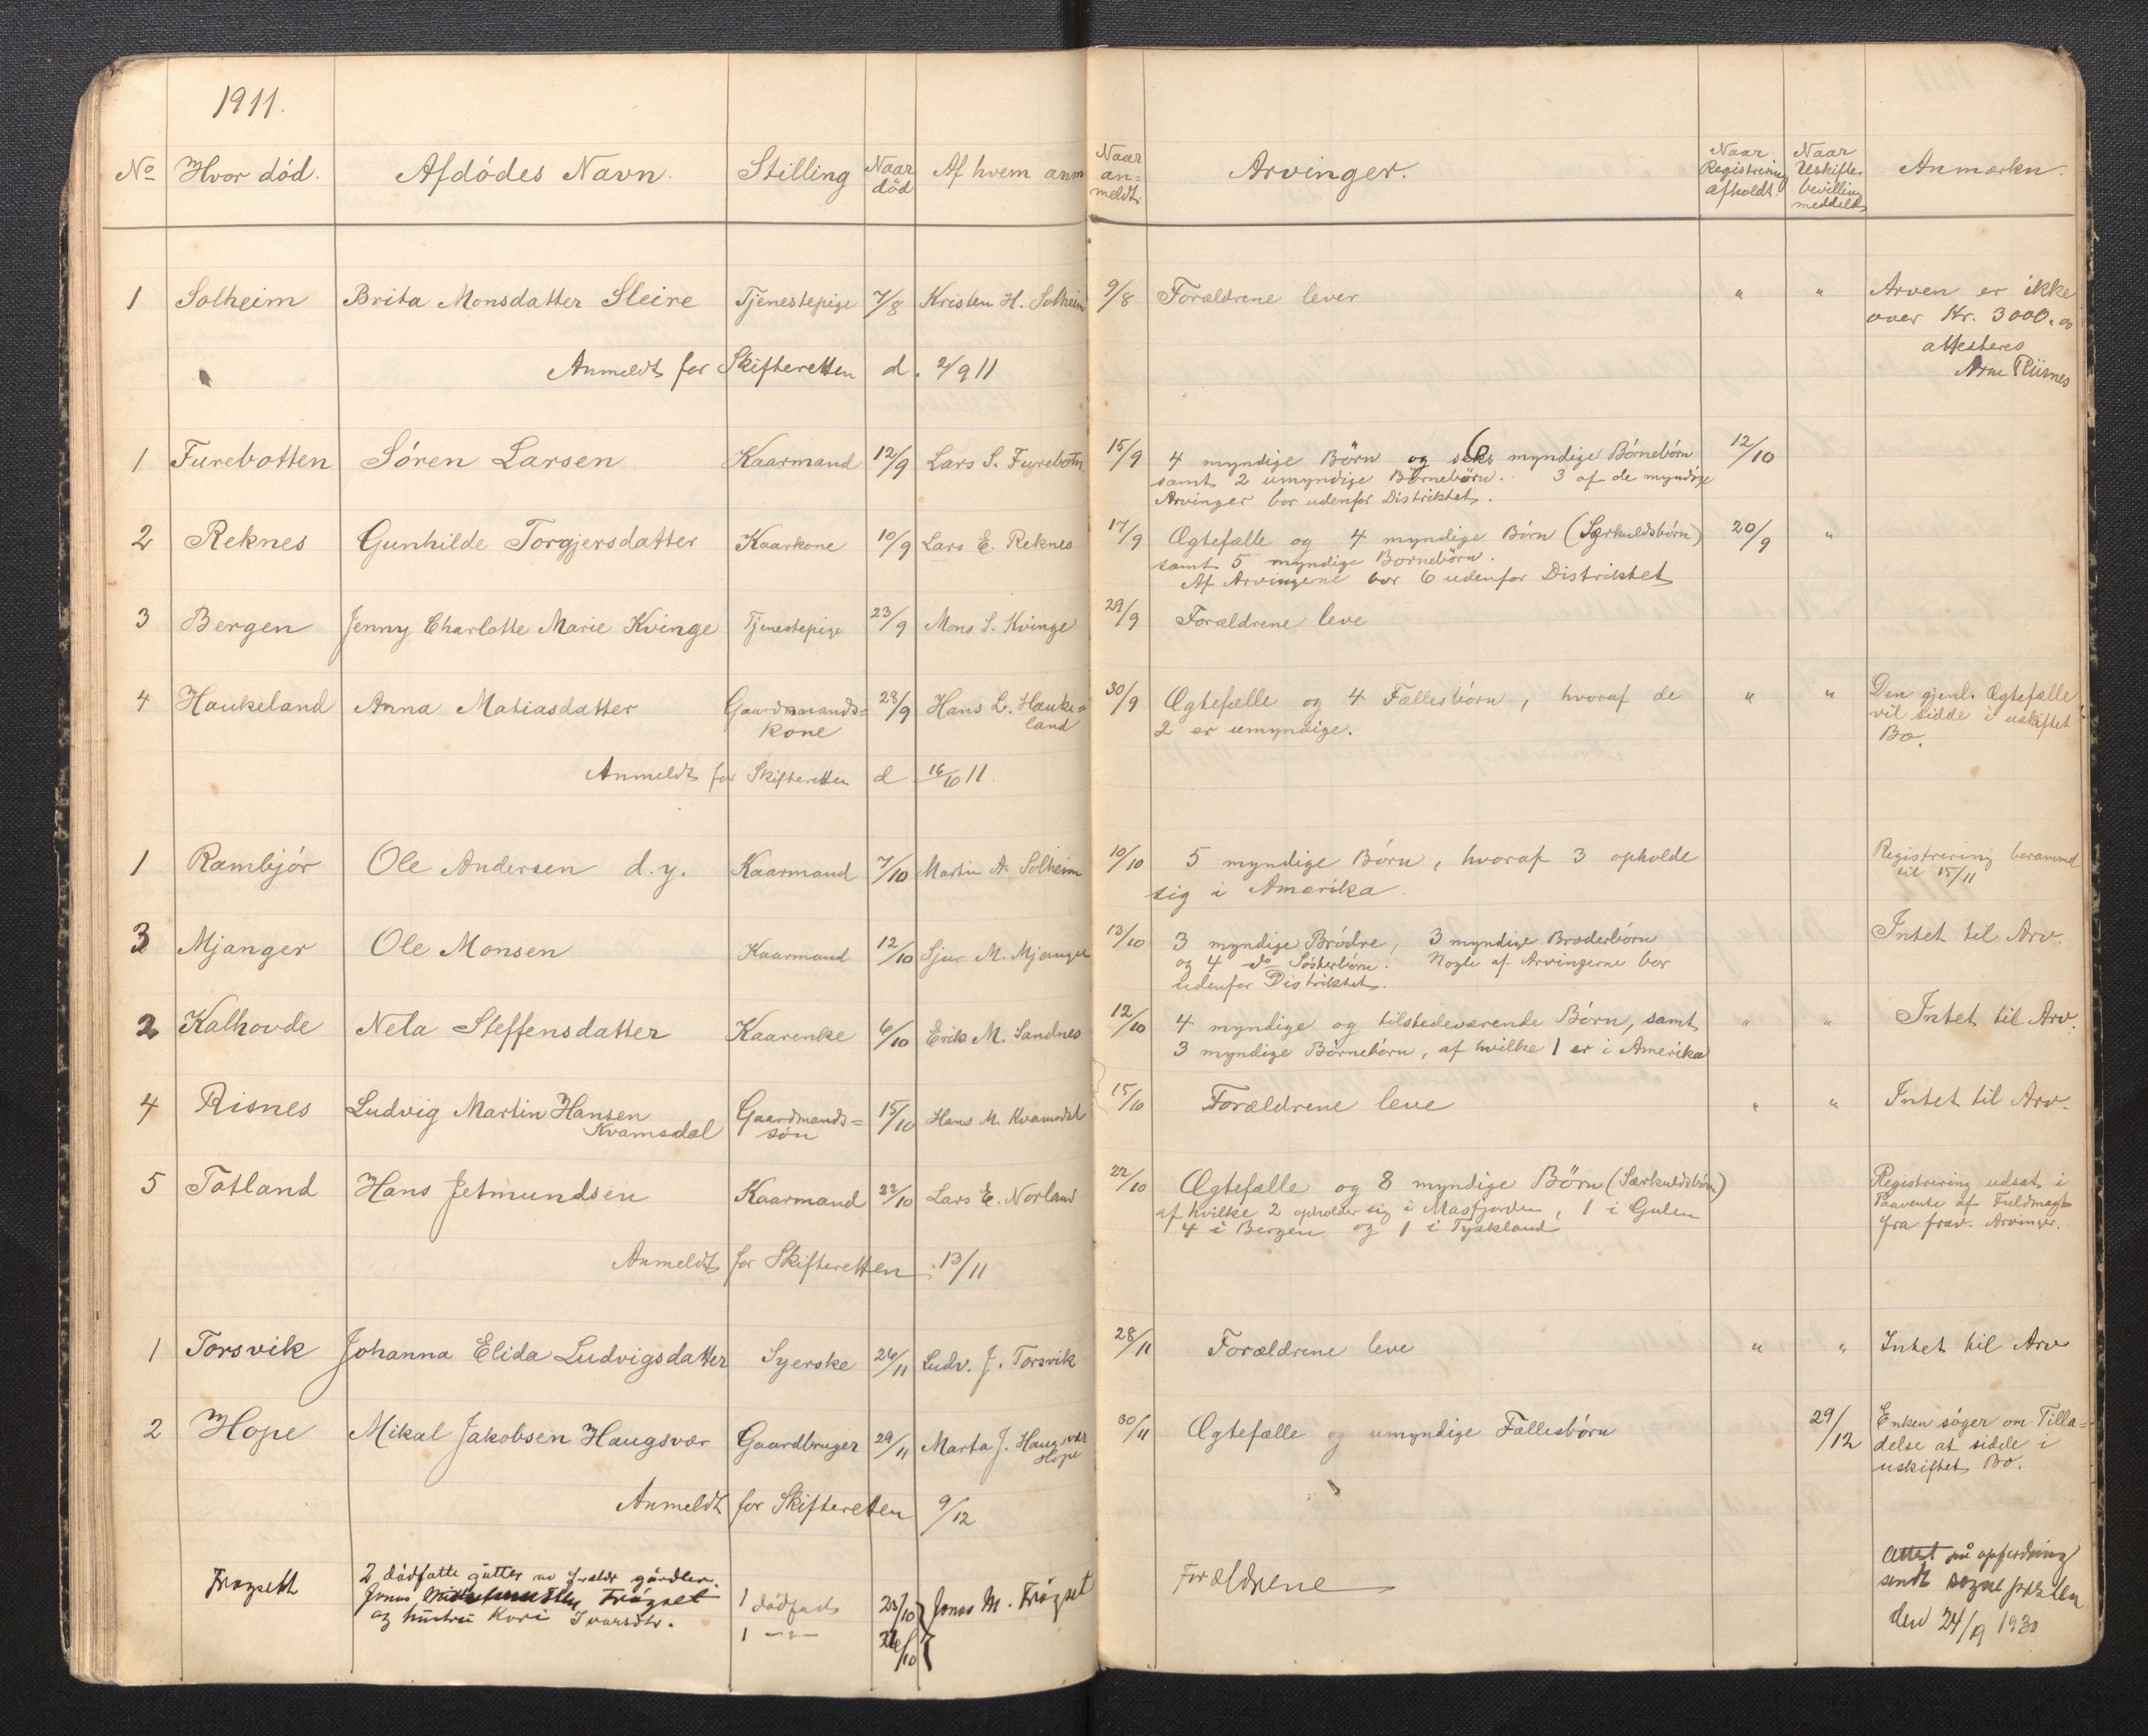 1911.
No Hvor död. Afdödes Navn. Stilling Naar död Af hvem anm Naar an=meldt. Arvinger. Naar Registrering afholdt Naar Uskifte bevilling meddelt Anmærkn.
1 Solheim Brita Monsdatter Sleire Tjenestepige 7/8 Kristen H. Solheim 9/8 Forældrene lever " " Arven er ikke
over Kr. 3000.00
attesteres
Arne Riisnes
Anmeldt for Skifteretten d. 2/9 11
1 Furebotten Sören Larsen Kaarmand 12/9 Lars S. Furebotn. 15/9 4 myndige Börn og 6 myndige Börnebörn 12/10
samt 2 umyndige Börnebörn. 3 af de myndige
Arvinger bor udenfor Distriktet.
2 Reknes Gunhilde Torgjersdatter Kaarkone 10/9 Lars E. Reknes 17/9 Ægtefælle og 4 myndige Börn (Særkuldsbörn) 20/9 "
samt 5 myndige Bornebörn.
Af Arvingerne bor 6 udenfor Distriktet
3 Bergen Jenny Charlotte Marie Kvinge Tjenestepige 23/9 Mons S. Kvinge 29/9 Forældrene leve
4 Haukeland Anna Matiasdatter Gaardmands= 28/9 Hans L. Hauke= 30/9 Ægtefælle og 4 Fællesbörn, hvoraf de " " Den gjenl. Ægtefælle
kone land 2 er umyndige. vil sidde i uskiftet
Bo.
Anmeldt for Skifteretten d 16/10 11.
1 Rambjör Ole Andersen d.y. Kaarmand 7/10 Martin A. Solheim 10/10 5 myndige Börn, hvoraf 3 opholde Registrering berammet
sig i Amerika. til 15/11
3 Mjanger Ole Monsen Kaarmand 12/10 Sjur M. Mjanger 13/10 3 myndige Brödre, 3 myndige Broderbörn Intet til Arv.
og 4 do Sösterbörn. Nogle af Arvingerne bor
udenfor Distriktet.
2 Kalhovde Nela Steffensdatter Kaarenke 6/10 Erik M. Sandnes 12/10 4 myndige og tilstedeværende Börn, samt " " Intet til Arv.
3 myndige Börnebörn, af hvilke 1 er i Amerika
4 Risnes Ludvig Martin Hansen Gaardmands= 15/10 Hans M. Kvamsdal 15/10 Forældrene leve " " Intet til Arv.
Kvamsdal sön
5 Totland Hans Jetmundsen Kaarmand 22/10 Lars E. Norland 22/10 Ægtefælle og 8 myndige Börn (Særkuldsbörn) Registrering udsat i
af hvilke 2 opholder sig i Masfjorden, 1 i Gulen Paavente af Fuldmagt
4 i Bergen og 1 i Tyskland fra frav. Arvinger.
Anmeldt for Skifteretten 13/11
1 Torsvik Johanna Elida Ludvigsdatter Syerske 26/11 Ludv. J. Torsvik 28/11 Forældrene leve " " Intet til Arv
2 Hope Mikal Jakobsen Haugsvær Gaardbruger 29/11 Marta J. Haugsvær Hope 30/11 Ægtefælle og umyndige Fællesbörn 29/12 Enken söger om Tilla=
delse at sidde i
uskiftet Bo.
Anmeldt for Skifteretten 9/12
Fröyseth 2 dödfötte gutter av gårdbr. Forældrene Attest på opfordring
Jonas Fröyset 1 dödföds 25/10 Jonas M. Fröyset sendt sognepresten
og hustru Kari Ivarsdtr. 1 — " — 26/10 den 24/9 1930